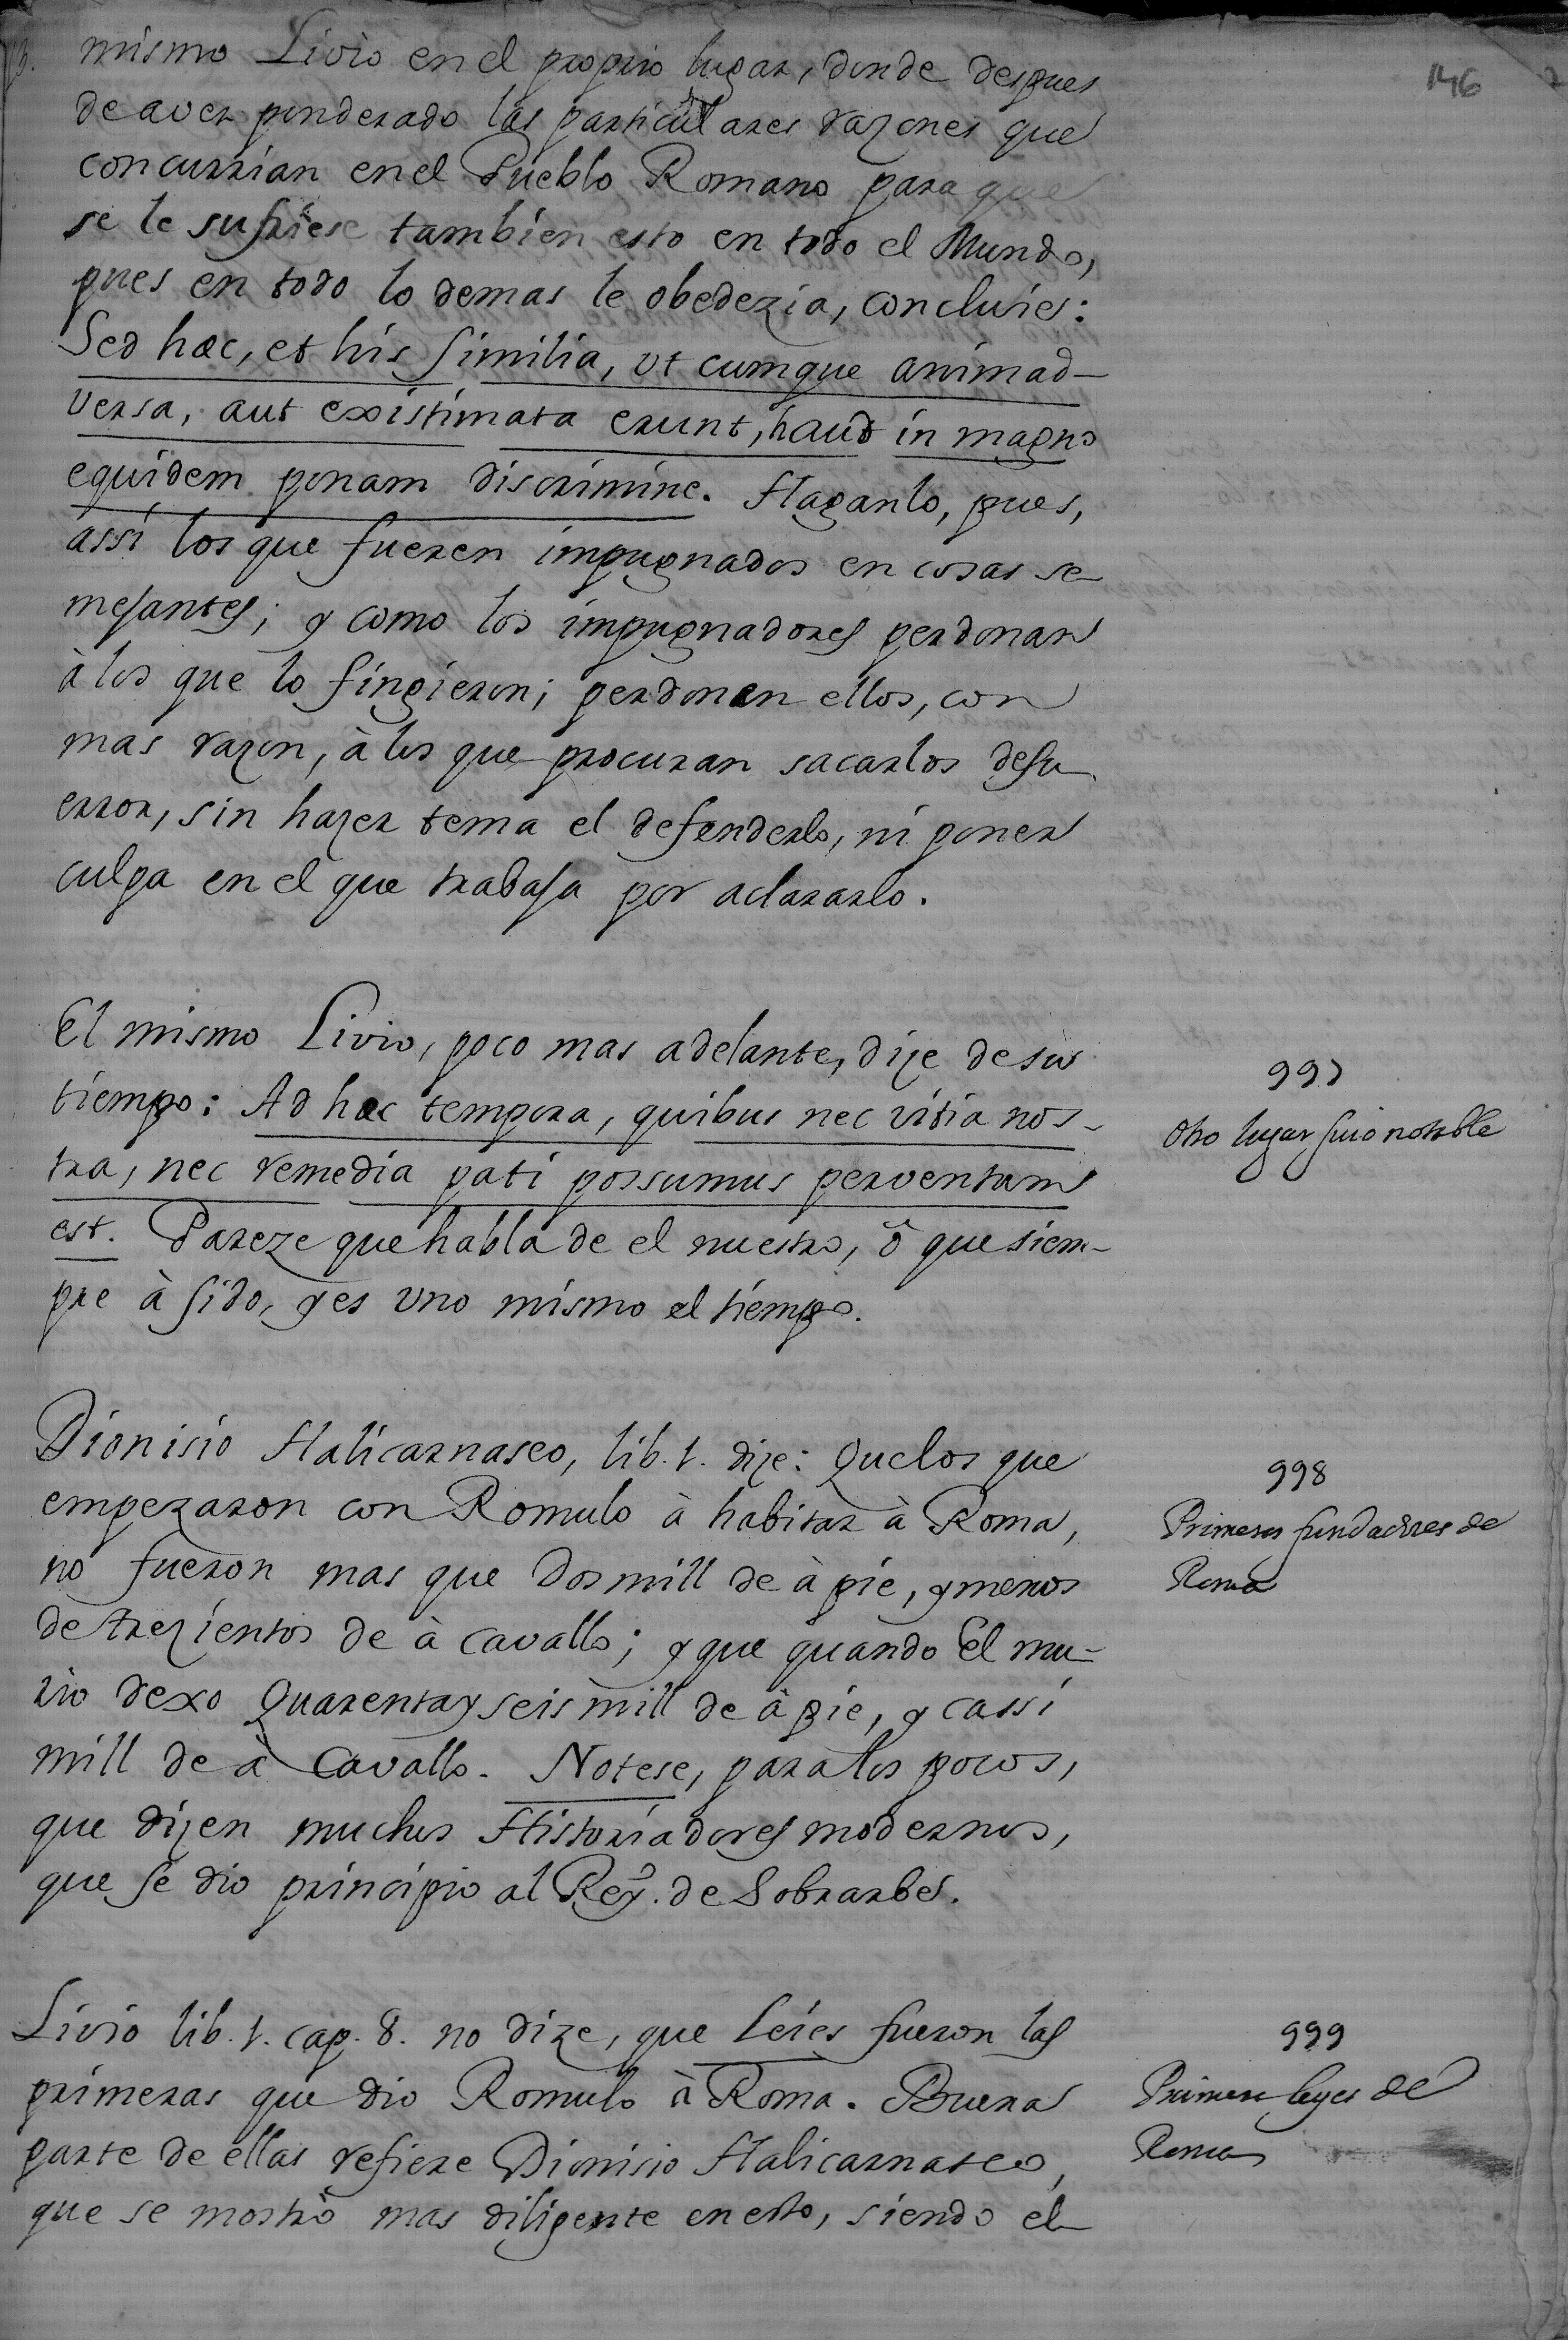 146
mismo Livio en el proprio lugar, donde despues
de aver ponderado las particulares razones que
concurrian en el Pueblo Romano para que
se le sufriese tambien esto en todo el Mundo,
pues en todo lo demas le obedezia, concluies:
Sed hæc, et his similia, ut cumque animad-
versa, aut existimata erunt, haud in magno
equidem ponam discrimine. Haganlo, pues,
assi los que fueren impugnados en cosas se-
mejantes; y como los impugnadores perdonan
à los que lo fingieron; perdonen ellos, con
mas razon, à los que procuran sacarlos de su
error, sin hazer tema el defenderlo, ni poner
culpa en el que trabaja por aclararlo.
El mismo Livio, poco mas adelante, dize de su
tiempo: Ad hæc tempora, quibus nec vitia nos-
tra, nec remedia pati possumus perventum
est. Pareze que habla de el nuestro, ò que siem-
pre à sido, y es uno mismo el tiempo.
997
Otro lugar suio notable
Dionisio Halicarnaseo, lib. 1. dize: Que los que
empezaron con Romulo à habitar à Roma,
no fueron mas que dos mill de à pie, y menos
de trezientos de à cavallo; y que quando El mu-
rio dexo Quarenta y seis mill de à pie, y cassi
mill de à cavallo. Notese, para los pocos,
que dizen muchos Historiadores modernos,
que se dio principio al Reyº. de Sobrarbes.
998
Primeros fundadores de
Roma
Livio lib. 1. cap. 8. no dize, que Leies fueron las
primeras que dio Romulo à Roma. Buena
parte de ellas refiere Dionisio Halicarnaseo,
que se mostrò mas diligente en esto, siendo el
999
Primeras leyes de
Roma